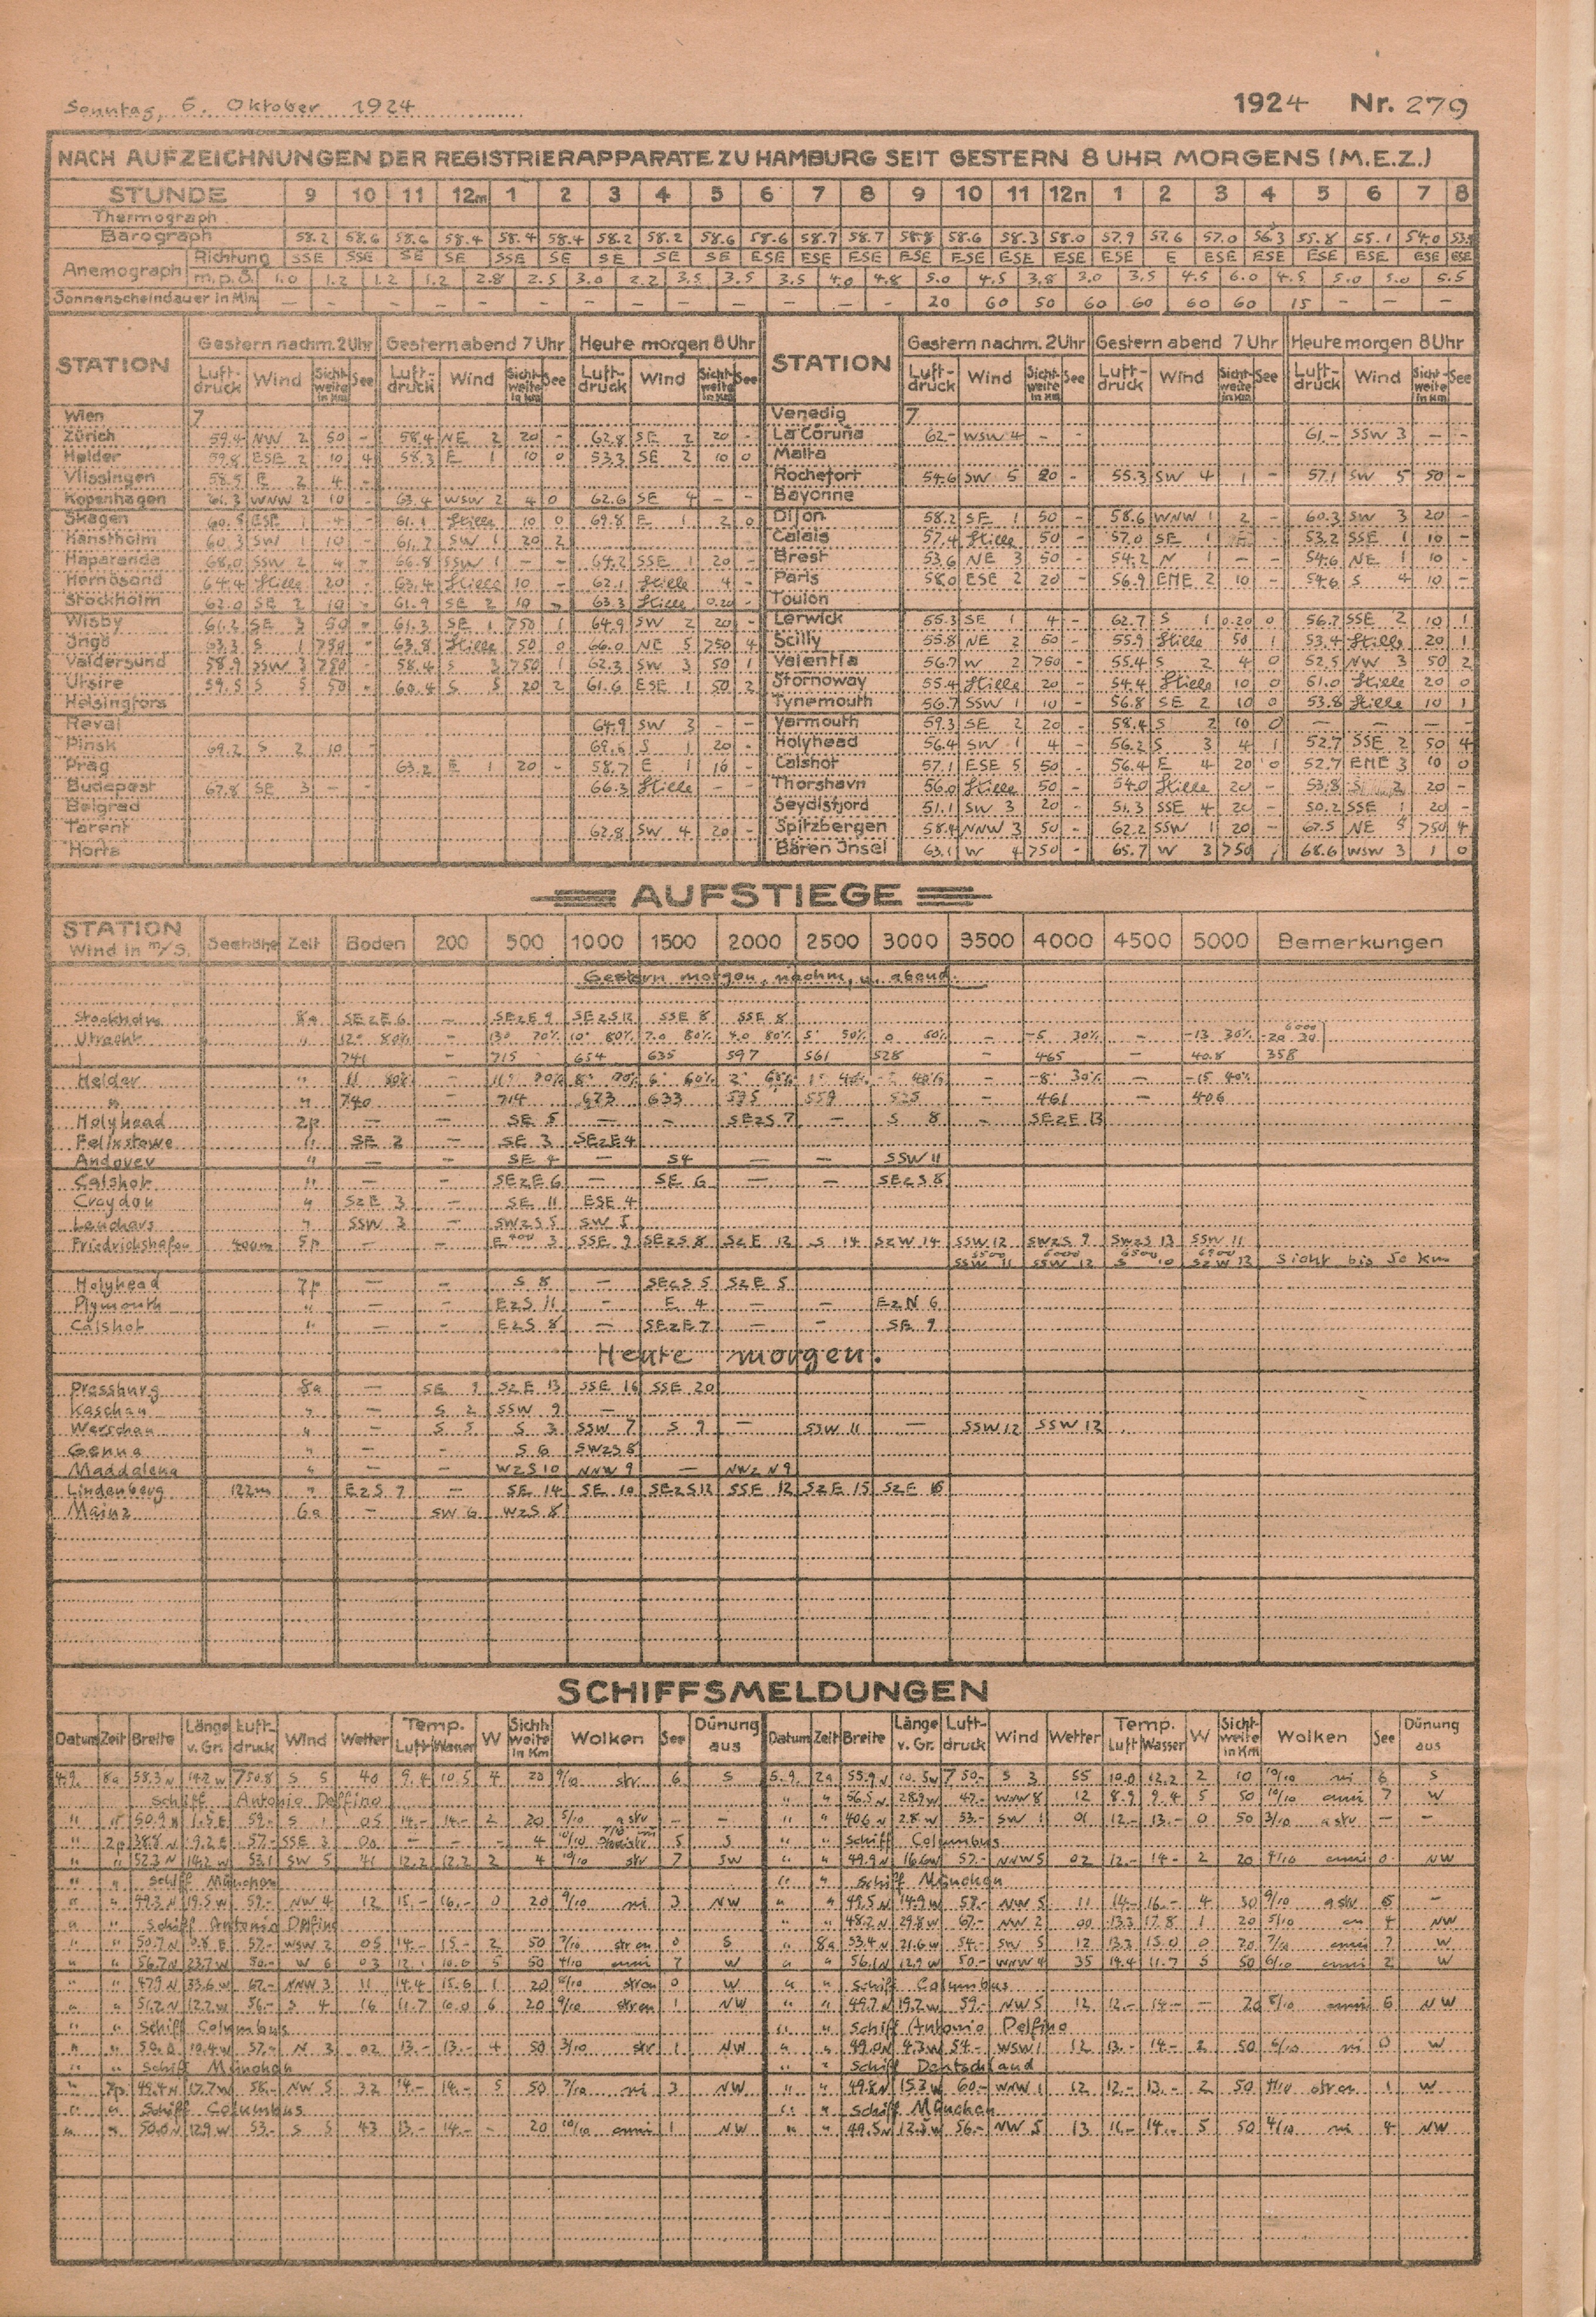 Sonntag, 6. Oktober 1924
1924 Nr. 279
NACH AUFZEICHNUNGEN DER REGISTRIERAPPARATE ZU HAMBURG SEIT GESTERN 8 UHR MORGENS (M.E.Z.)
STUNDE 9 10 11 12m 1 2 3 4 5 6 7 8 9 10 11 12n 1 2 3 4 5 6 7 8
Thermograph
Barograph 58.2 58.6 58.6 58.4 58.4 58.4 58.2 58.2 58.6 58.6 58.7 58.7 58.8 58.6 58.3 58.0 57.9 57.6 57.0 56.3 55.8 55.1 54.0
Anemograph Richtung SSE SSE SE SE SSE SE SE SE SE ESE ESE ESE ESE ESE ESE ESE ESE E ESE ESE ESE ESE ESE ESE
m.p.s. 1.0 1.2 1.2 1.2 2.8 2.5 3.0 2.2 3.5 3.5 3.5 4.0 4.8 5.0 4.5 3.8 3.0 3.5 4.5 6.0 4.5 5.0 5.0 5.5
Sonnenscheindauer in Min. — — — — — — — — — — — — 20 60 50 60 60 60 60 15 — — —
STATION Gestern nachm. 2 Uhr Gestern abend 7 Uhr Heute morgen 8 Uhr STATION Gestern nachm. 2 Uhr Gestern abend 7 Uhr Heute morgen 8 Uhr
Luftdruck Wind Sichtweite in Km See Luftdruck Wind Sichtweite in Km See Luftdruck Wind Sichtweite in Km See Luftdruck Wind Sichtweite in Km See Luftdruck Wind Sichtweite in Km See Luftdruck Wind Sichtweite in Km See
Wien 7 Venedig 7
Zürich 59.4 NW 2 50 - 58.4 NE 2 20 - 62.8 SE 2 20 - La Coruña 62.- WSW 4 - - 61.- SSW 3 - -
Helder 59.8 ESE 2 10 4 58.3 E 1 10 0 53.3 SE 2 10 0 Malta
Vlissingen 58.5 E 2 4 - Rochefort 54.6 SW 5 20 - 55.3 SW 4 1 - 57.1 SW 5 50 -
Kopenhagen 61.3 WNW 2 10 - 63.4 WSW 2 4 0 62.6 SE 4 - - Bayonne
Skagen 60.5 ESE 1 4 - 61.1 Stille 10 0 69.8 E 1 2 0 Dijon 58.2 SE 1 50 - 58.6 WNW 1 2 - 60.3 SW 3 20 -
Hanstholm 60.3 SW 1 10 - 61.2 SW 1 20 2 Calais 57.4 Stille 50 - 57.0 SE 1 53.2 SSE 1 10 -
Haparanda 68.0 SSW 2 4 - 66.8 SSW 1 - - 64.2 SSE 1 20 - Brest 53.6 NE 3 50 - 54.2 N 1 - - 54.6 NE 1 10 -
Hernösand 64.4 Stille 20 - 63.4 Stille 10 - 62.1 Stille 4 - Paris 58.0 ESE 2 20 - 56.9 ENE 2 10 - 54.6 S 4 10 -
Stockholm 62.0 SE 2 10 - 61.9 SE 2 10 - 63.3 Stille 0.20 - Toulon
Wisby 61.2 SE 3 50 - 61.3 SE 1 750 1 64.9 SW 2 20 - Lerwick 55.3 SE 1 4 - 62.7 S 1 0.20 0 56.7 SSE 2 10 1
Ingö 63.3 S 1 750 - 63.8 Stille 50 0 66.0 NE 5 750 4 Scilly 55.8 NE 2 50 - 55.9 Stille 50 1 53.4 Stille 20 1
Valdersund 58.9 SSW 3 750 - 58.4 S 3 750 1 62.3 SW 3 50 1 Valentia 56.7 W 2 750 - 55.4 S 2 4 0 52.5 NW 3 50 2
Utsire 59.5 S 5 50 - 60.4 S 5 20 2 61.6 ESE 1 50 2 Stornoway 55.4 Stille 20 - 54.4 Stille 10 0 51.0 Stille 20 0
Helsingfors Tynemouth 56.7 SSW 1 10 - 56.8 SE 2 10 0 53.8 Stille 10 1
Reval 64.9 SW 3 - - Yarmouth 59.3 SE 2 20 58.4 S 2 10 0 - - - -
Pinsk 69.2 S 2 10 - 69.6 S 1 20 - Holyhead 56.4 SW 1 4 - 56.2 S 3 4 1 52.7 SSE 2 50 4
Prag 63.2 E 1 20 - 58.7 E 1 10 - Calshot 57.1 ESE 5 50 - 56.4 E 4 20 0 52.7 ENE 3 10 0
Budapest 67.8 SE 3 - - 66.3 Stille - - Thorshavn 56.0 Stille 50 - 54.0 Stille 20 - 53.8 20 -
Belgrad Seydisfjord 51.1 SW 3 20 - 51.3 SSE 4 20 - 50.2 SSE 1 20 -
Tarent 62.8 SW 4 20 - Spitzbergen 58.4 NNW 3 50 - 62.2 SSW 1 20 - 67.5 NE 5 >50 4
Horta Bären Insel 63.1 W 4 >50 - 65.7 W 3 >50 68.6 WSW 3 1 0
AUFSTIEGE
STATION Wind in m/S. Seehöhe Zeit Boden 200 500 1000 1500 2000 2500 3000 3500 4000 4500 5000 Bemerkungen
Gestern morgen, nachm. u. abend.
Stockholm 8a SEzE 6 — SEzE 9 SEzS 12 SSE 8 SSE 8
Utrecht " 12° 80% - 13° 70% 10° 80% 7.0 80% 4.0 80% 5° 50% 0 50% - -5 30% - -13 30% 6000 -20 30
741 - 715 654 635 597 561 528 - 465 - 40.8 358
Helder " 11 80% - 11° 90% 8° 90% 6° 60% 2° 68% 40% - -8° 30% - -15 40%
" " 740 - 714 673 633 595 559 525 - 461 - 406
Holyhead 2p — — SE 5 — — SEzS 7 — S 8 - SEzE 13
Felixstowe " SE 2 — SE 3 SEzE 4
Andover " — — SE 4 — S 4 — — SSW 11
Calshot " — — SEzE 6 — SE 6 — — SEzS 8
Croydon " SzE 3 — SE 11 ESE 4
Leuchars " SSW 3 — SWzS 5 SW 5
Friedrichshafen 400m 5p — — E 3 SSE 9 SEzS 8 SzE 12 S 14 SzW 14 SSW 12 SWzS 9 SWzS 13 SSW 11
5500 SSW 11 6000 SSW 12 6500 S 10 6900 SzW 13 Sicht bis 50 Km
Holyhead 7p — — S 8 — SEzS 5 SzE 5
Plymouth " — — EzS 11 - E 4 — — EzN 6
Calshot " — — EzS 8 — SEzE 7 — — SE 9
Heute morgen.
Pressburg 8a — SE 9 SzE 13 SSE 16 SSE 20
Kaschau " — S 2 SSW 9 —
Warschau " — S 5 S 3 SSW 7 S 9 — SSW 11 — SSW 12 SSW 12
Genua " — - S 6 SWzS 8
Maddalena " — - WzS 10 NNW 9 — NWzN 9
Lindenberg 122m " EzS 7 — SE 14 SE 10 SEzS 12 SSE 12 SzE 15 SzE 15
Mainz 6a — SW 6 WzS 8
SCHIFFSMELDUNGEN
Datum Zeit Breite Länge v. Gr. Luftdruck Wind Wetter Temp. Luft Wasser W Sichtweite in Km Wolken See Dünung aus Datum Zeit Breite Länge v. Gr. Luftdruck Wind Wetter Temp. Luft Wasser W Sichtweite in Km Wolken See Dünung aus
4.9. 8a 53.3 N 14.2 W 750.8 S 5 40 9.4 10.5 4 20 9/10 str 6 S 5.9. 2a 55.9 N 10.5 W 750.- S 3 55 10.0 12.2 2 10 10/10 ni 6 S
Schiff Antonio Delfino " " 56.5 N 28.9 W 47.- WNW 8 12 8.9 9.4 5 50 10/10 cuni 7 W
" " 50.9 N 1.5 E 59.- S 1 05 14.- 14.- 2 20 5/10 a str - - " " 40.6 N 2.8 W 53.- SW 1 01 12.- 13.- 0 50 3/10 a str — —
" 2p 38.8 N 9.2 E 57.- SSE 3 00 - - - 4 10/10 5 S " " Schiff Columbus
" " 52.3 N 14.2 W 53.1 SW 5 41 12.2 12.2 2 4 10/10 str 7 SW " " 49.9 N 16.6 W 57.- NNW 5 02 12.- 14.- 2 20 4/10 cuni 0 NW
" " Schiff München " " Schiff München
" " 49.3 N 19.5 W 59.- NW 4 12 15.- 16.- 0 20 9/10 ni 3 NW " " 49.5 N 14.9 W 58.- NW 5 11 14.- 16.- 4 50 9/10 a str 5 -
" " Schiff Antonio Delfino " " 48.2 N 29.8 W 67.- NW 2 00 13.3 17.8 1 20 5/10 cu 4 NW
" " 50.7 N 0.8 E 57.- WSW 2 05 14.- 15.- 2 50 7/10 str cu 0 S " 8a 53.4 N 21.6 W 54.- SW 5 12 13.3 15.0 0 20 7/10 cuni 7 W
" " 56.7 N 23.7 W 50.- W 6 03 12.1 10.6 5 50 4/10 cuni 7 W " " 56.1 N 12.9 W 50.- WNW 4 35 14.4 11.7 5 50 6/10 cuni 2 W
" " 47.9 N 33.6 W 67.- NNW 3 11 14.4 15.6 1 20 6/10 strcu 0 W " " Schiff Columbus
" " 51.2 N 12.2 W 56.- S 4 16 11.7 10.0 6 20 9/10 strcu 1 NW " " 49.7 N 19.2 W 59.- NW 5 12 12.- 14.- — 20 8/10 cuni 6 NW
" " Schiff Columbus " " Schiff Antonio Delfino
" " 50.0 10.4 W 57.- N 3 02 13.- 13.- 4 50 3/10 str 1 NW " " 49.0 N 4.3 W 54.- WSW 1 12 13.- 14.- 2 50 6/10 ni 0 W
" " Schiff München " " Schiff Deutschland
" 7p 49.4 N 17.7 W 58.- NW 5 32 14.- 14.- 5 50 7/10 ni 3 NW " " 49.8 N 15.3 W 60.- WNW 1 12 12.- 13.- 2 50 4/10 strcu 1 W
" " Schiff Columbus " " Schiff München
" " 50.0 N 12.9 W 53.- S 5 43 13.- 14.- - 20 10/10 cuni 1 NW " " 49.5 N 12.5 W 56.- NW 5 13 16.- 14.- 5 50 4/10 ni 4 NW